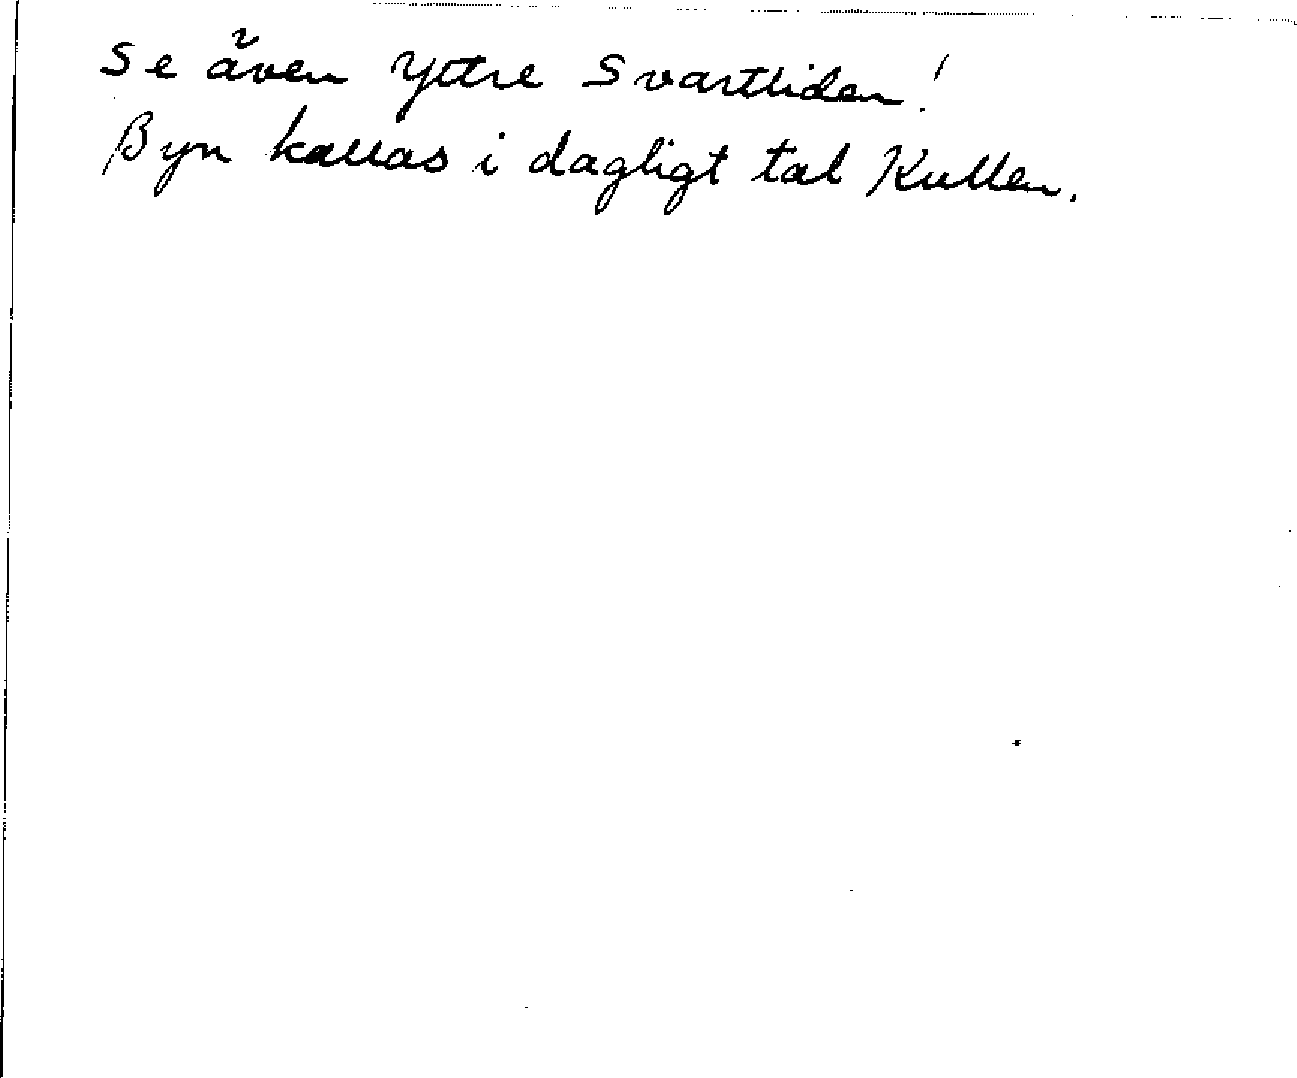 Se även Yttre Svartliden!
Byn kallas i dagligt tal Kullen.